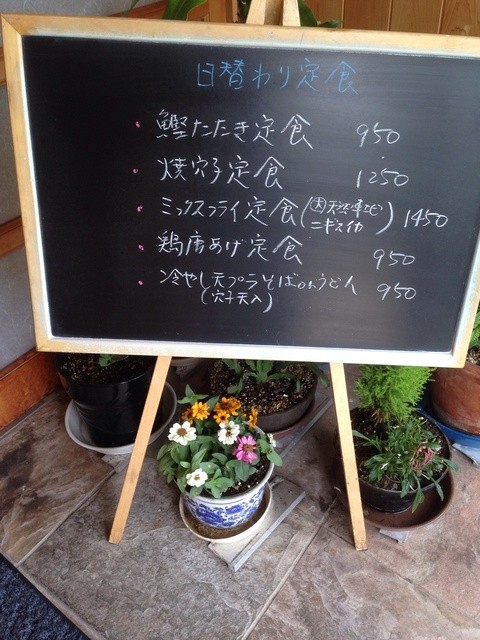 日替わり定食
・鰹たたき定食 950
・焼穴子定食 1250
・ミックスフライ定食(大天然車エビ 1450
ニギスイカ)
・鶏唐あげ定食 950
・冷やし天プラそばorうどん 950
(穴子天入)